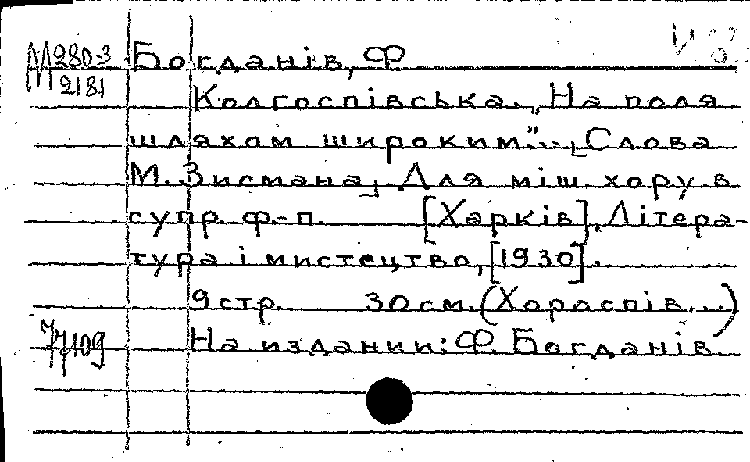 М280-3
М2181
Богданів, Ф
Колгоспівська. „На поля
шляхом широким"... Слова
М. Зисмана. Для міш. хору в
супр. ф.-п. [Харків], Літера-
тура і мистецтво, [1930].
9 стр. 30 см. (Хораспів...)
77109
На издании: Ф. Богданів